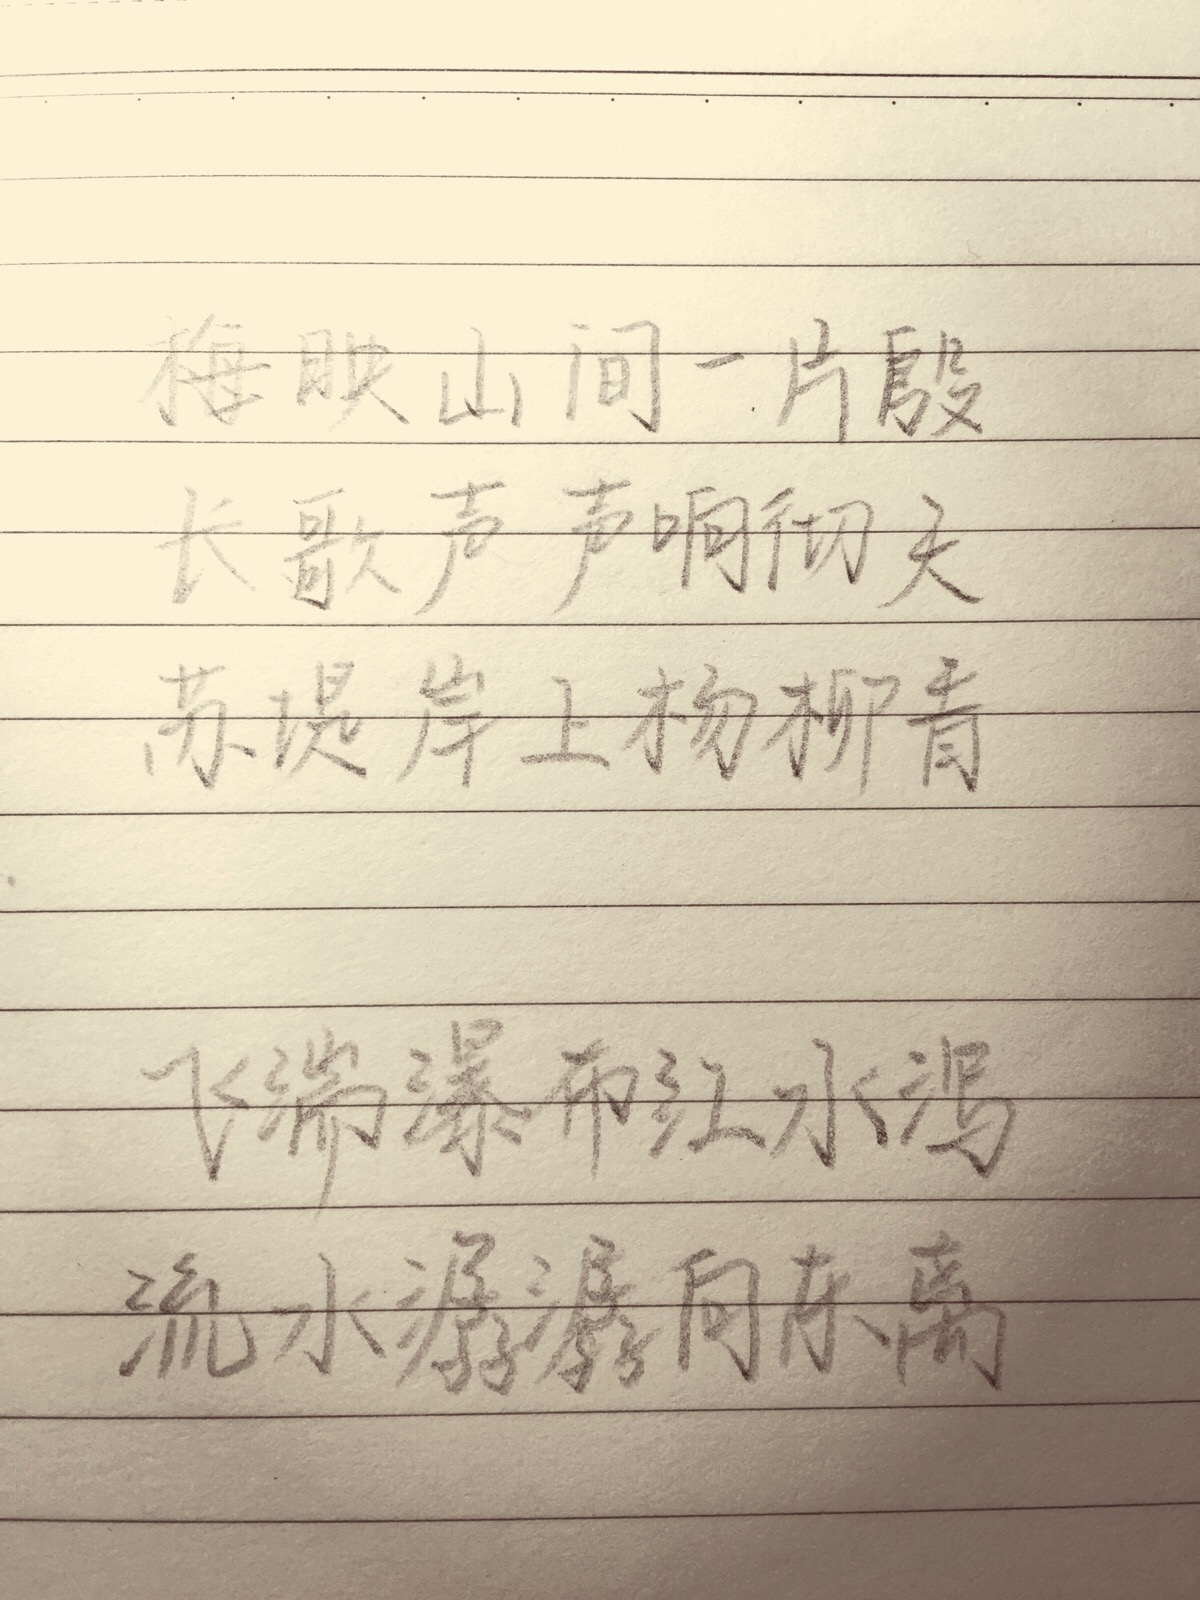 梅映山间一片殷
长歌声声响彻天
苏堤岸上杨柳青
飞湍瀑布红水泻
流水潺潺向东离